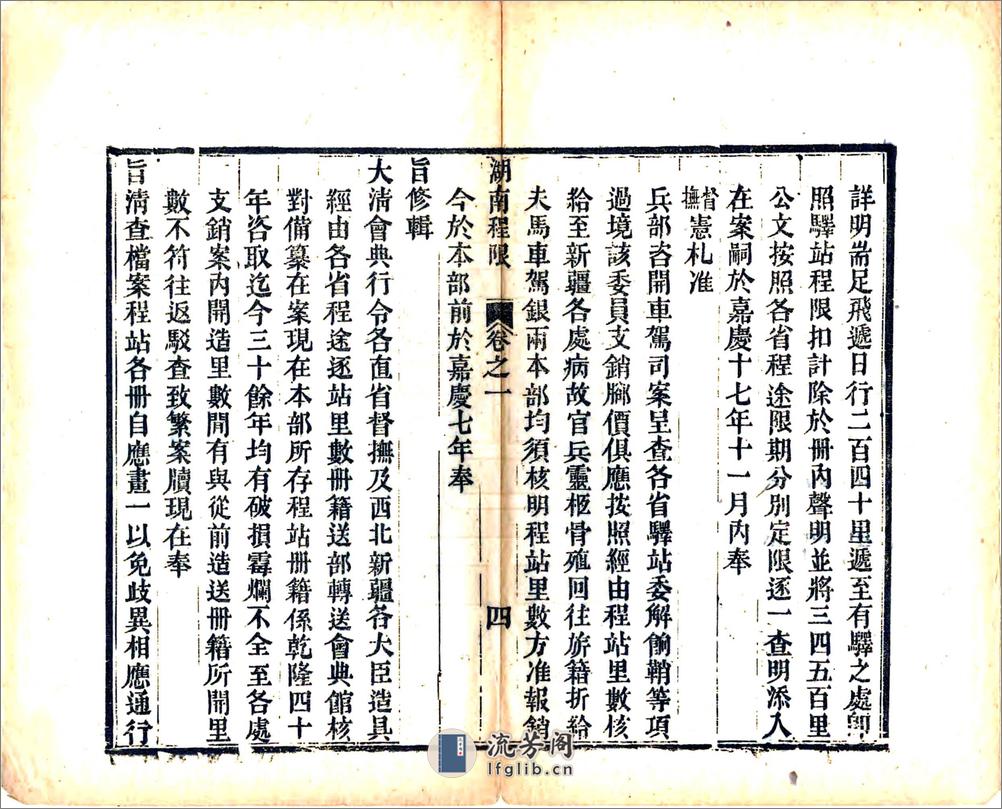 詳明耑足飛遞日行二百四十里遞至有驛之處卽
照驛站程限扣計除於册內聲明並將三四五百里
公文按照各省程途限期分別定限逐一查明添入
在案嗣於嘉慶十七年十一月內奉
督撫憲札准
兵部咨開車駕司案呈查各省驛站委解餉鞘等項
過境該委員支銷脚價俱應按照經由程站里數核
給至新疆各處病故官兵靈柩骨殖回往旂籍折給
夫馬車駕銀兩本部均須核明程站里數方准報銷
今於本部前於嘉慶七年奉
湖南程限 卷之一 四
旨修輯
大清會典行令各直省督撫及西北新疆各大臣造具
經由各省程途逐站里數册籍送部轉送會典館核
對備纂在案現在本部所存程站册籍係乾隆四十
年咨取迄今三十餘年均有破損霉爛不全至各處
支銷案內開造里數閒有與從前造送册籍所開里
數不符往返駁查致繁案牘現在奉
旨清查檔案程站各册自應畫一以免歧異相應通行
流芳阁
lfglib.cn